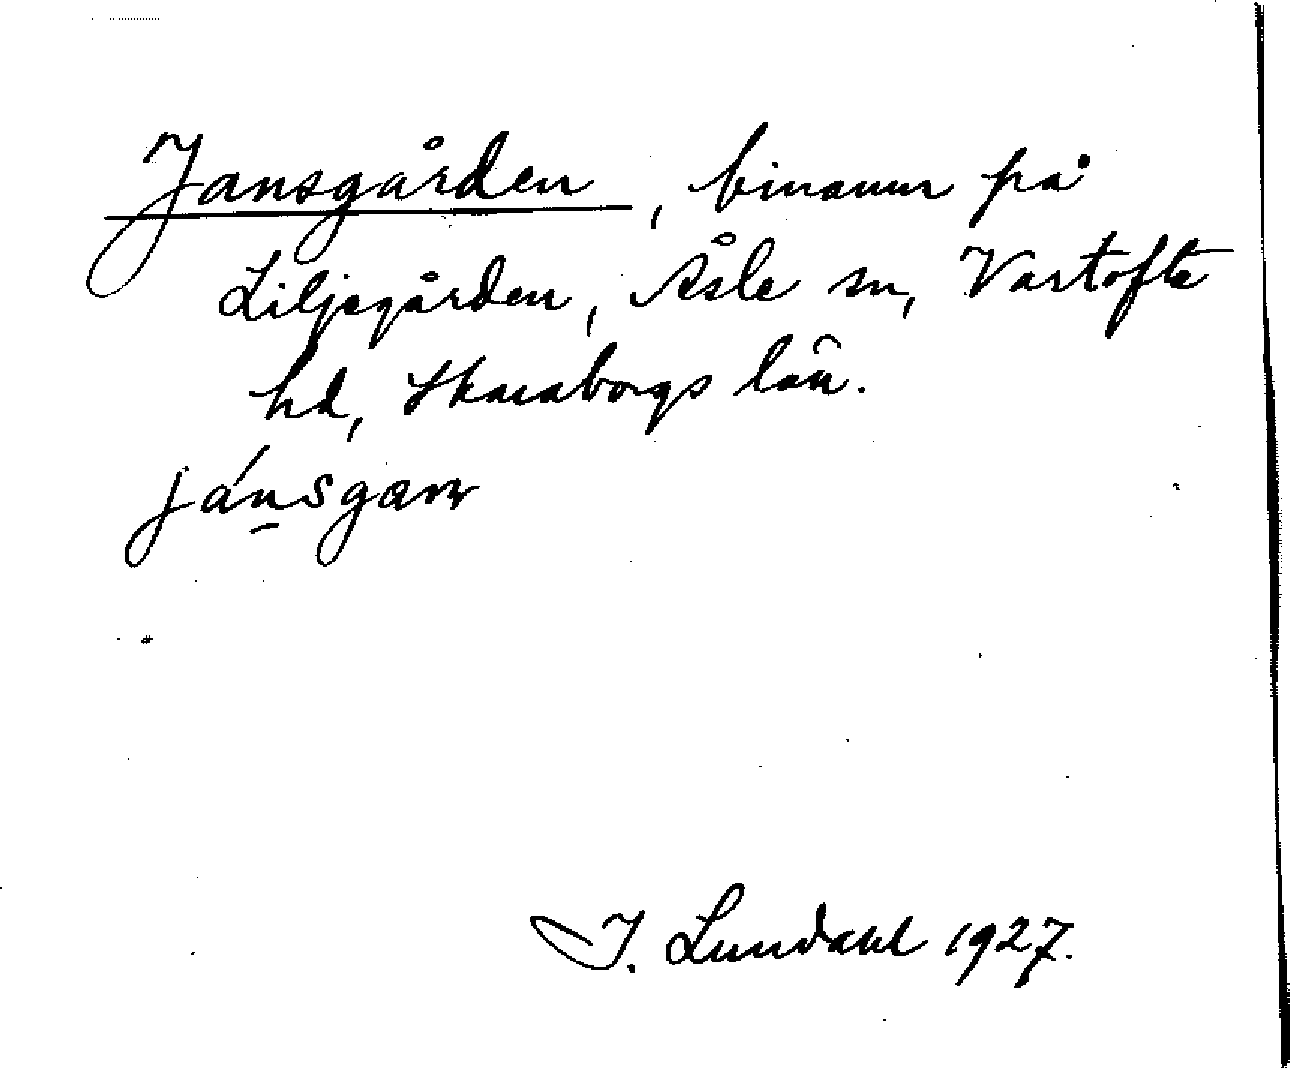 Jansgården, binamn på
Liljegården, Åsle sn, Vartofta
hd, Skaraborgs län.
jánsgaɴ
I. Lundahl 1927.